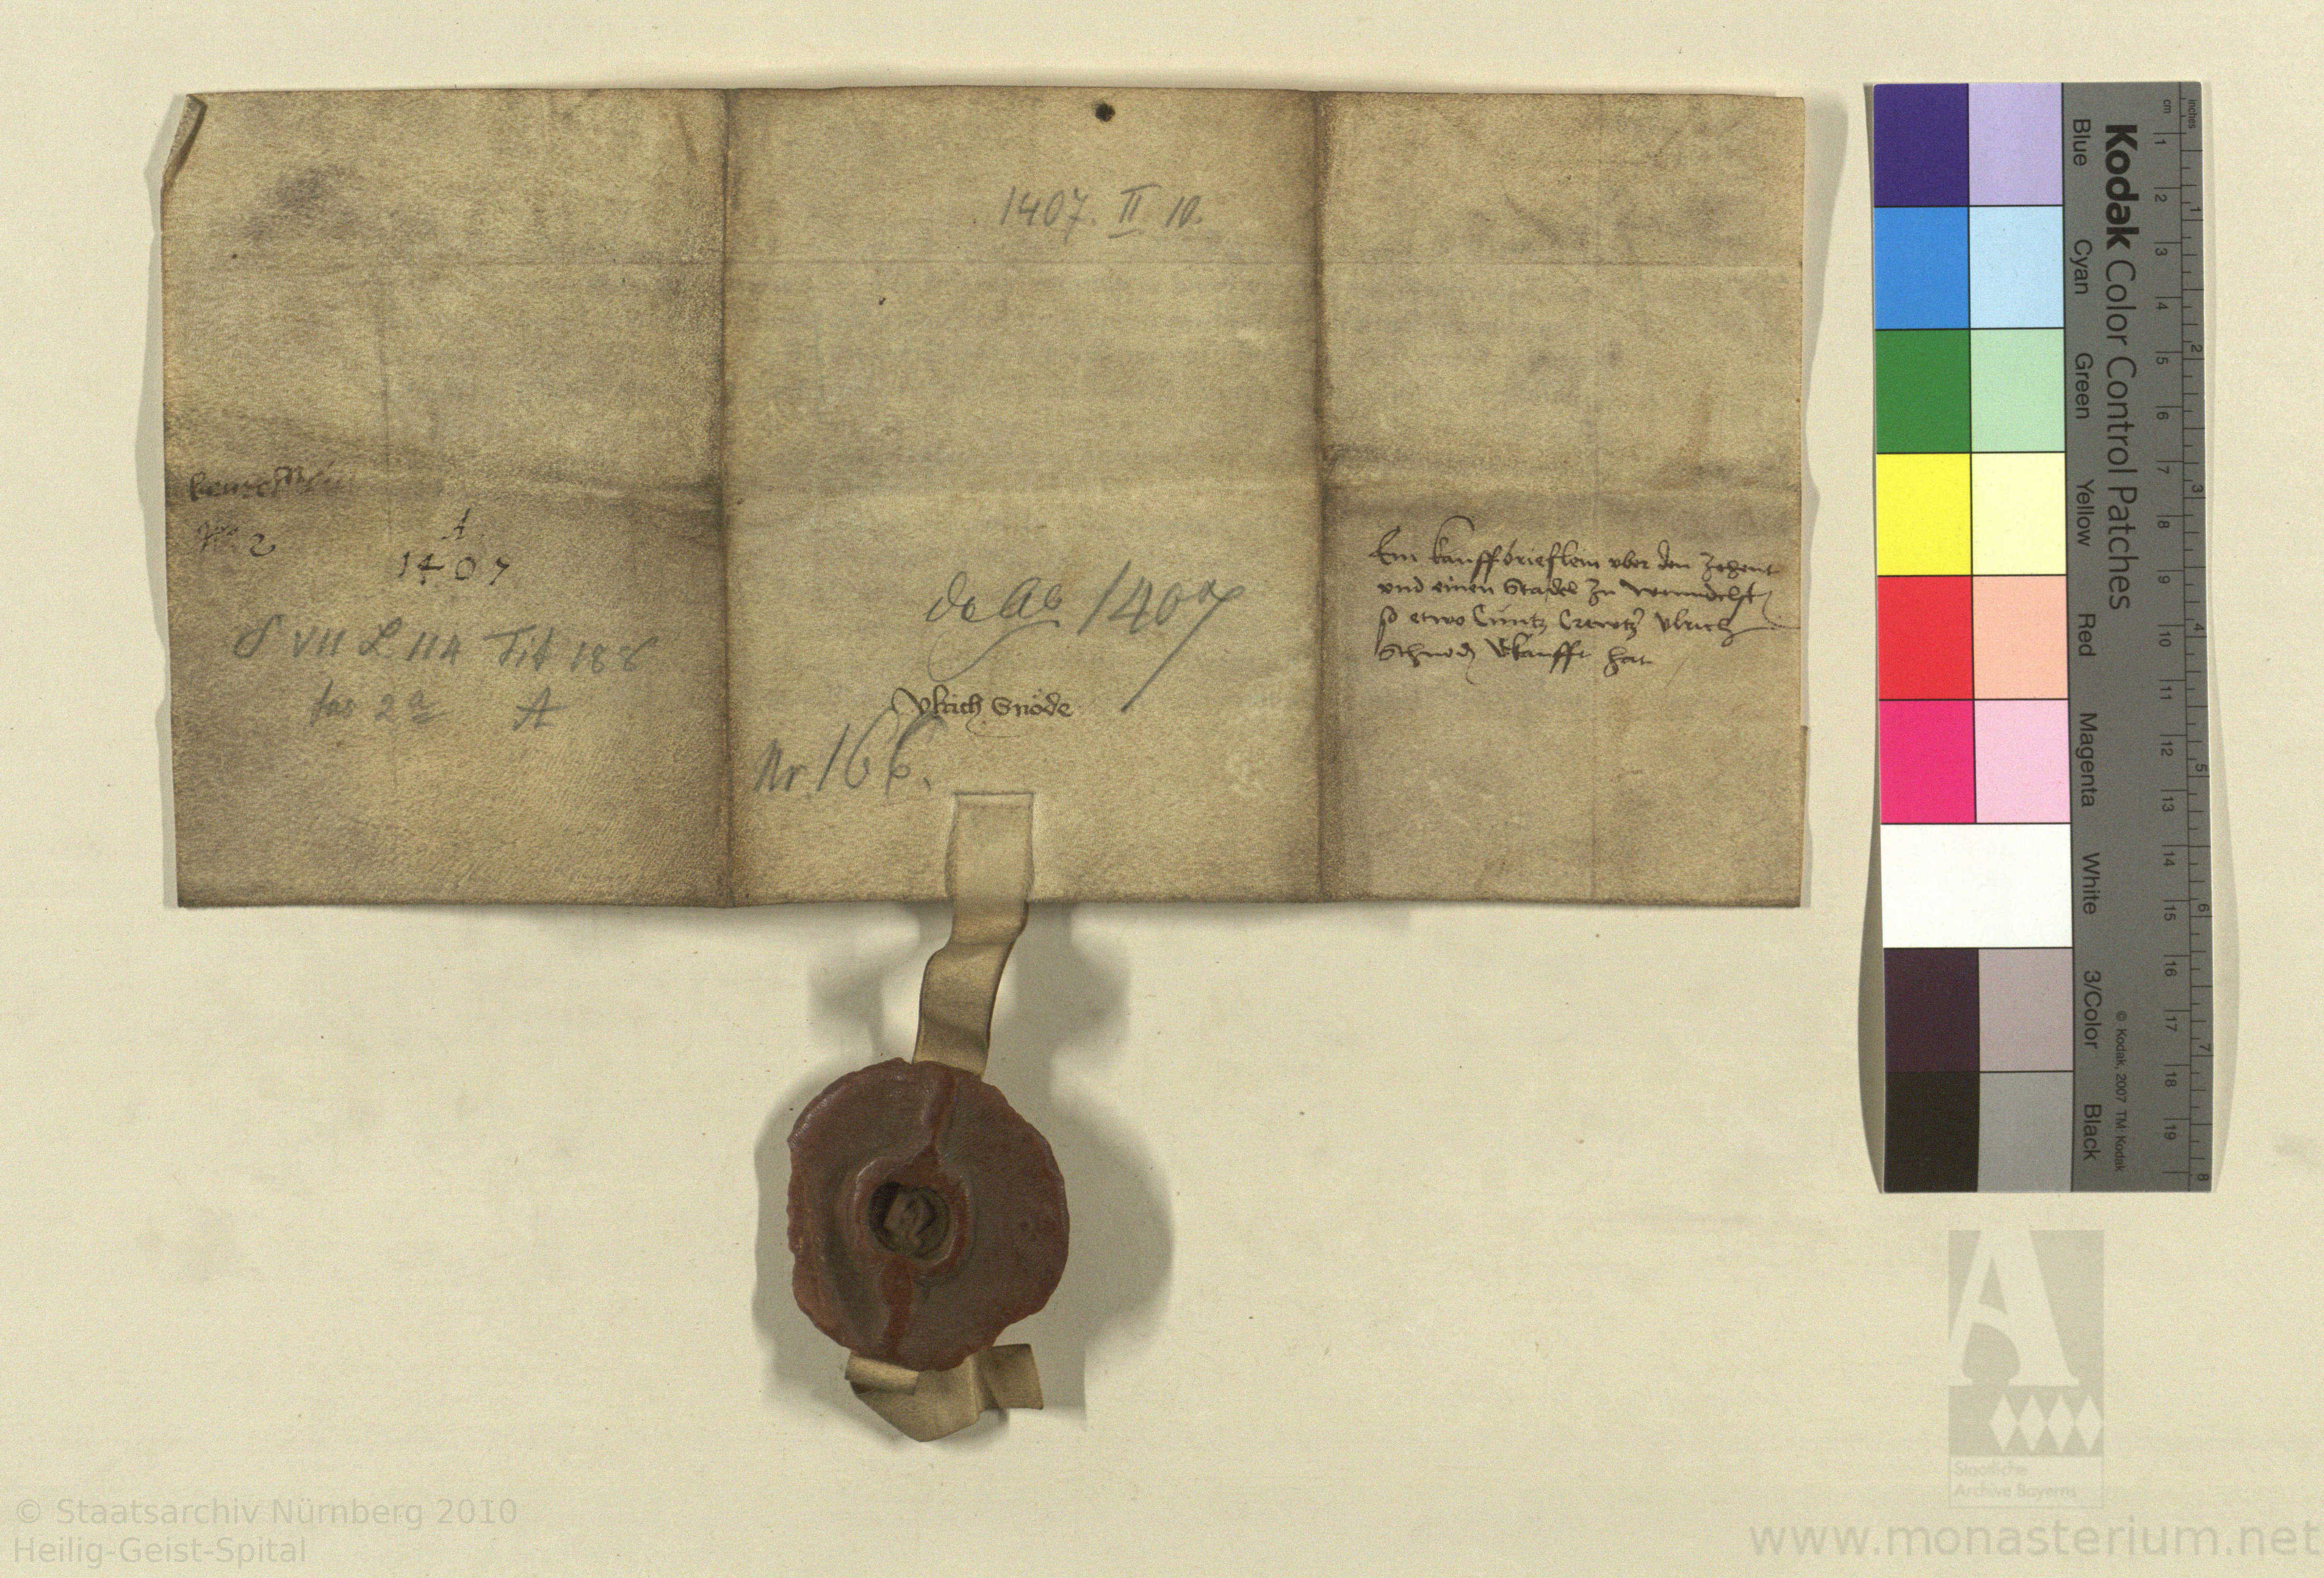 1407. II 10.
No 2
A
1407
S VII L 114 Tit 188
fas 2a A
de Ao 1407
Ulrich Snöde
Nr. 166.
Ein kauffbrieflein vber den Zehent
vnd einen Stadel zu Wenndelst
so etwo Cuntz Ulrich
Schnod vkaufft hat
Kodak Color Control Patches
Blue Cyan Green Yellow Red Magenta White 3/Color Black
cm 1 2 3 4 5 6 7 8 9 10 11 12 13 14 15 16 17 18 19
inches 1 2 3 4 5 6 7 8
© Kodak, 2007 TM: Kodak
Staatliche
Archive Bayerns
© Staatsarchiv Nürnberg 2010
Heilig-Geist-Spital
www.monasterium.net